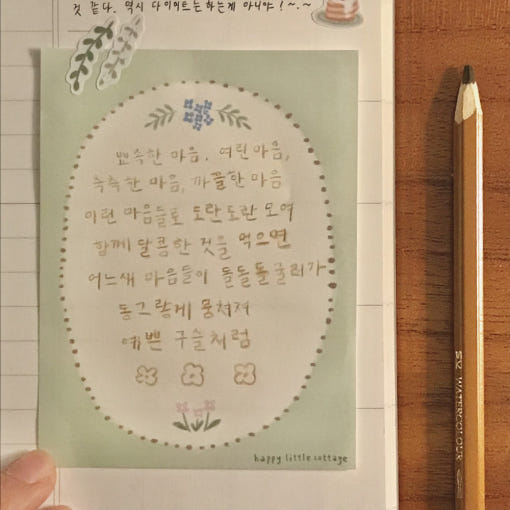 것 같다. 역시 다이어트는하는게 아니야! ~.~
뾰족한 마음, 여린마음,
축축한 마음, 까끌한 마음
이런 마음들로 도란도란 모여
함께 달콤한 것을 먹으면
어느새 마음들이 돌돌돌굴러가
동그랗게 뭉쳐져
예쁜 구슬처럼
happy little cottage
WATERCOLOUR